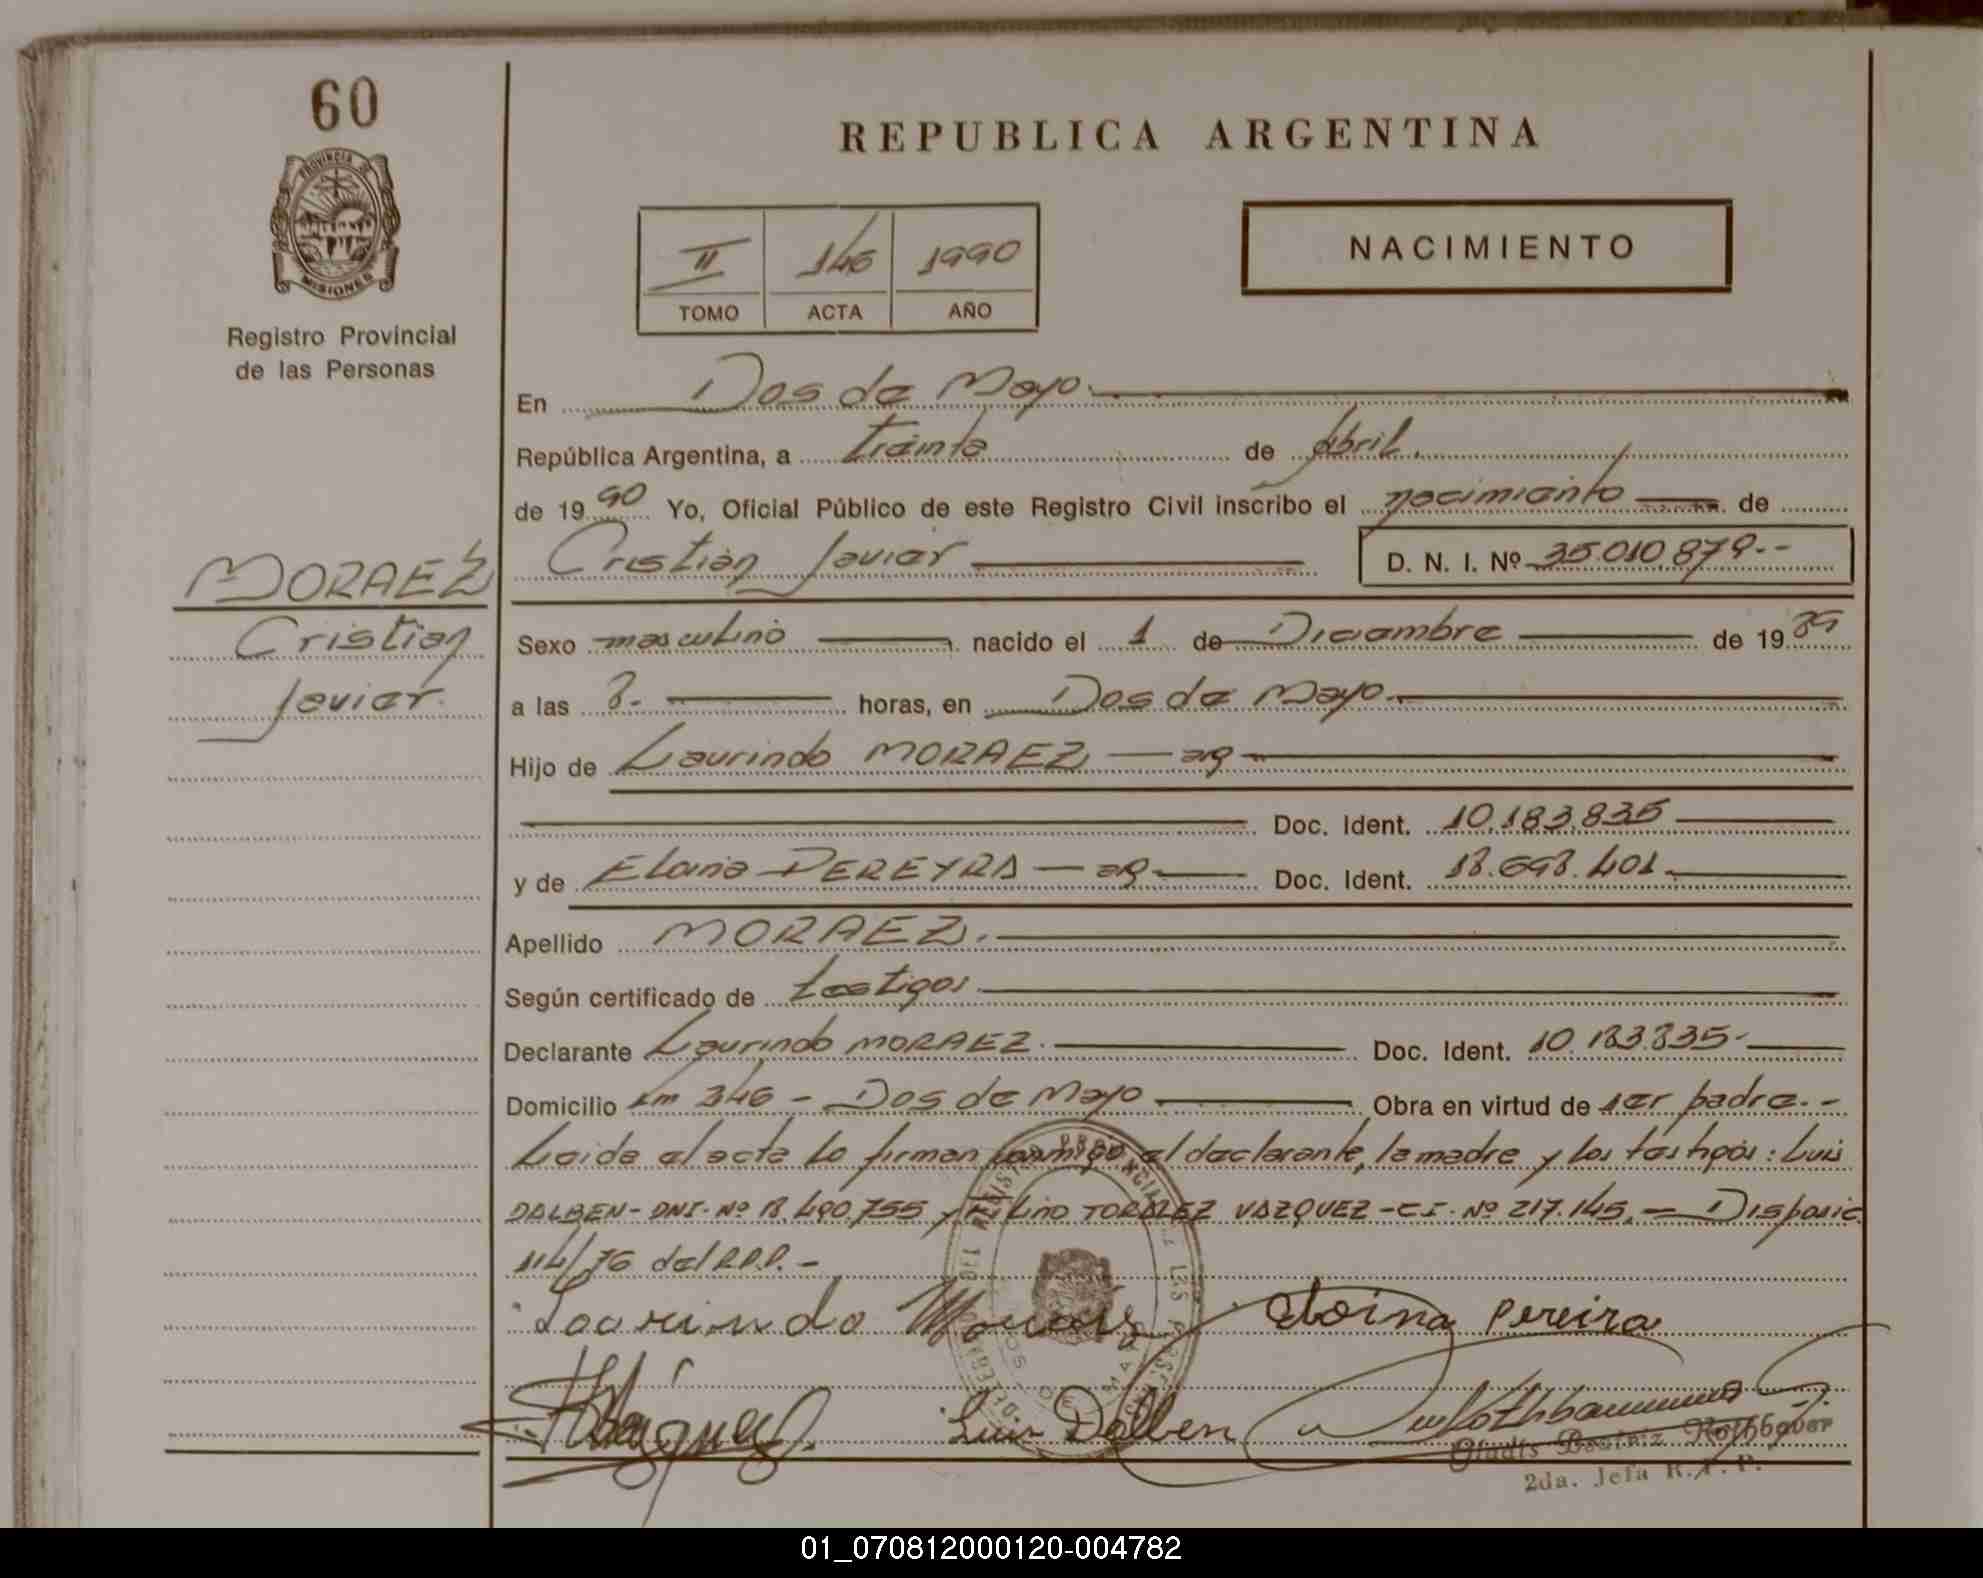 60
PROVINCIA DE
MISIONES
Registro Provincial
de las Personas
REPUBLICA ARGENTINA
II 146 1990
TOMO ACTA AÑO
NACIMIENTO
En Dos de Mayo
República Argentina, a treinta de abril.
de 1990 Yo, Oficial Público de este Registro Civil inscribo el nacimiento de
Cristian Javier D. N. I. Nº 35.010.879.--
MORAEZ
Cristian
Javier.
Sexo masculino nacido el 1 de Diciembre de 1989
a las 8.- horas, en Dos de Mayo.
Hijo de Laurindo MORAEZ — arg —
Doc. Ident. 10.183.835
y de PEREYRA — arg — Doc. Ident. 18.698.401
Apellido MORAEZ.
Según certificado de testigos
Declarante Laurindo MORAEZ. Doc. Ident. 10.183.835-
Domicilio Km 346 - Dos de Mayo Obra en virtud de ser padre.-
Leida el acta lo firman conmigo el declarante, la madre y los testigos: Luis
DALBEN - DNI. Nº 18.490.755 y TORALEZ VAZQUEZ - C.I. Nº 217.145. — Disposic.
114/76 del R.P.P. -
Laurindo Moraez Eloina Pereira
Luis Dalben
Gladis Beatriz Rothbauer
2da. Jefa R. P. P.
01_070812000120-004782